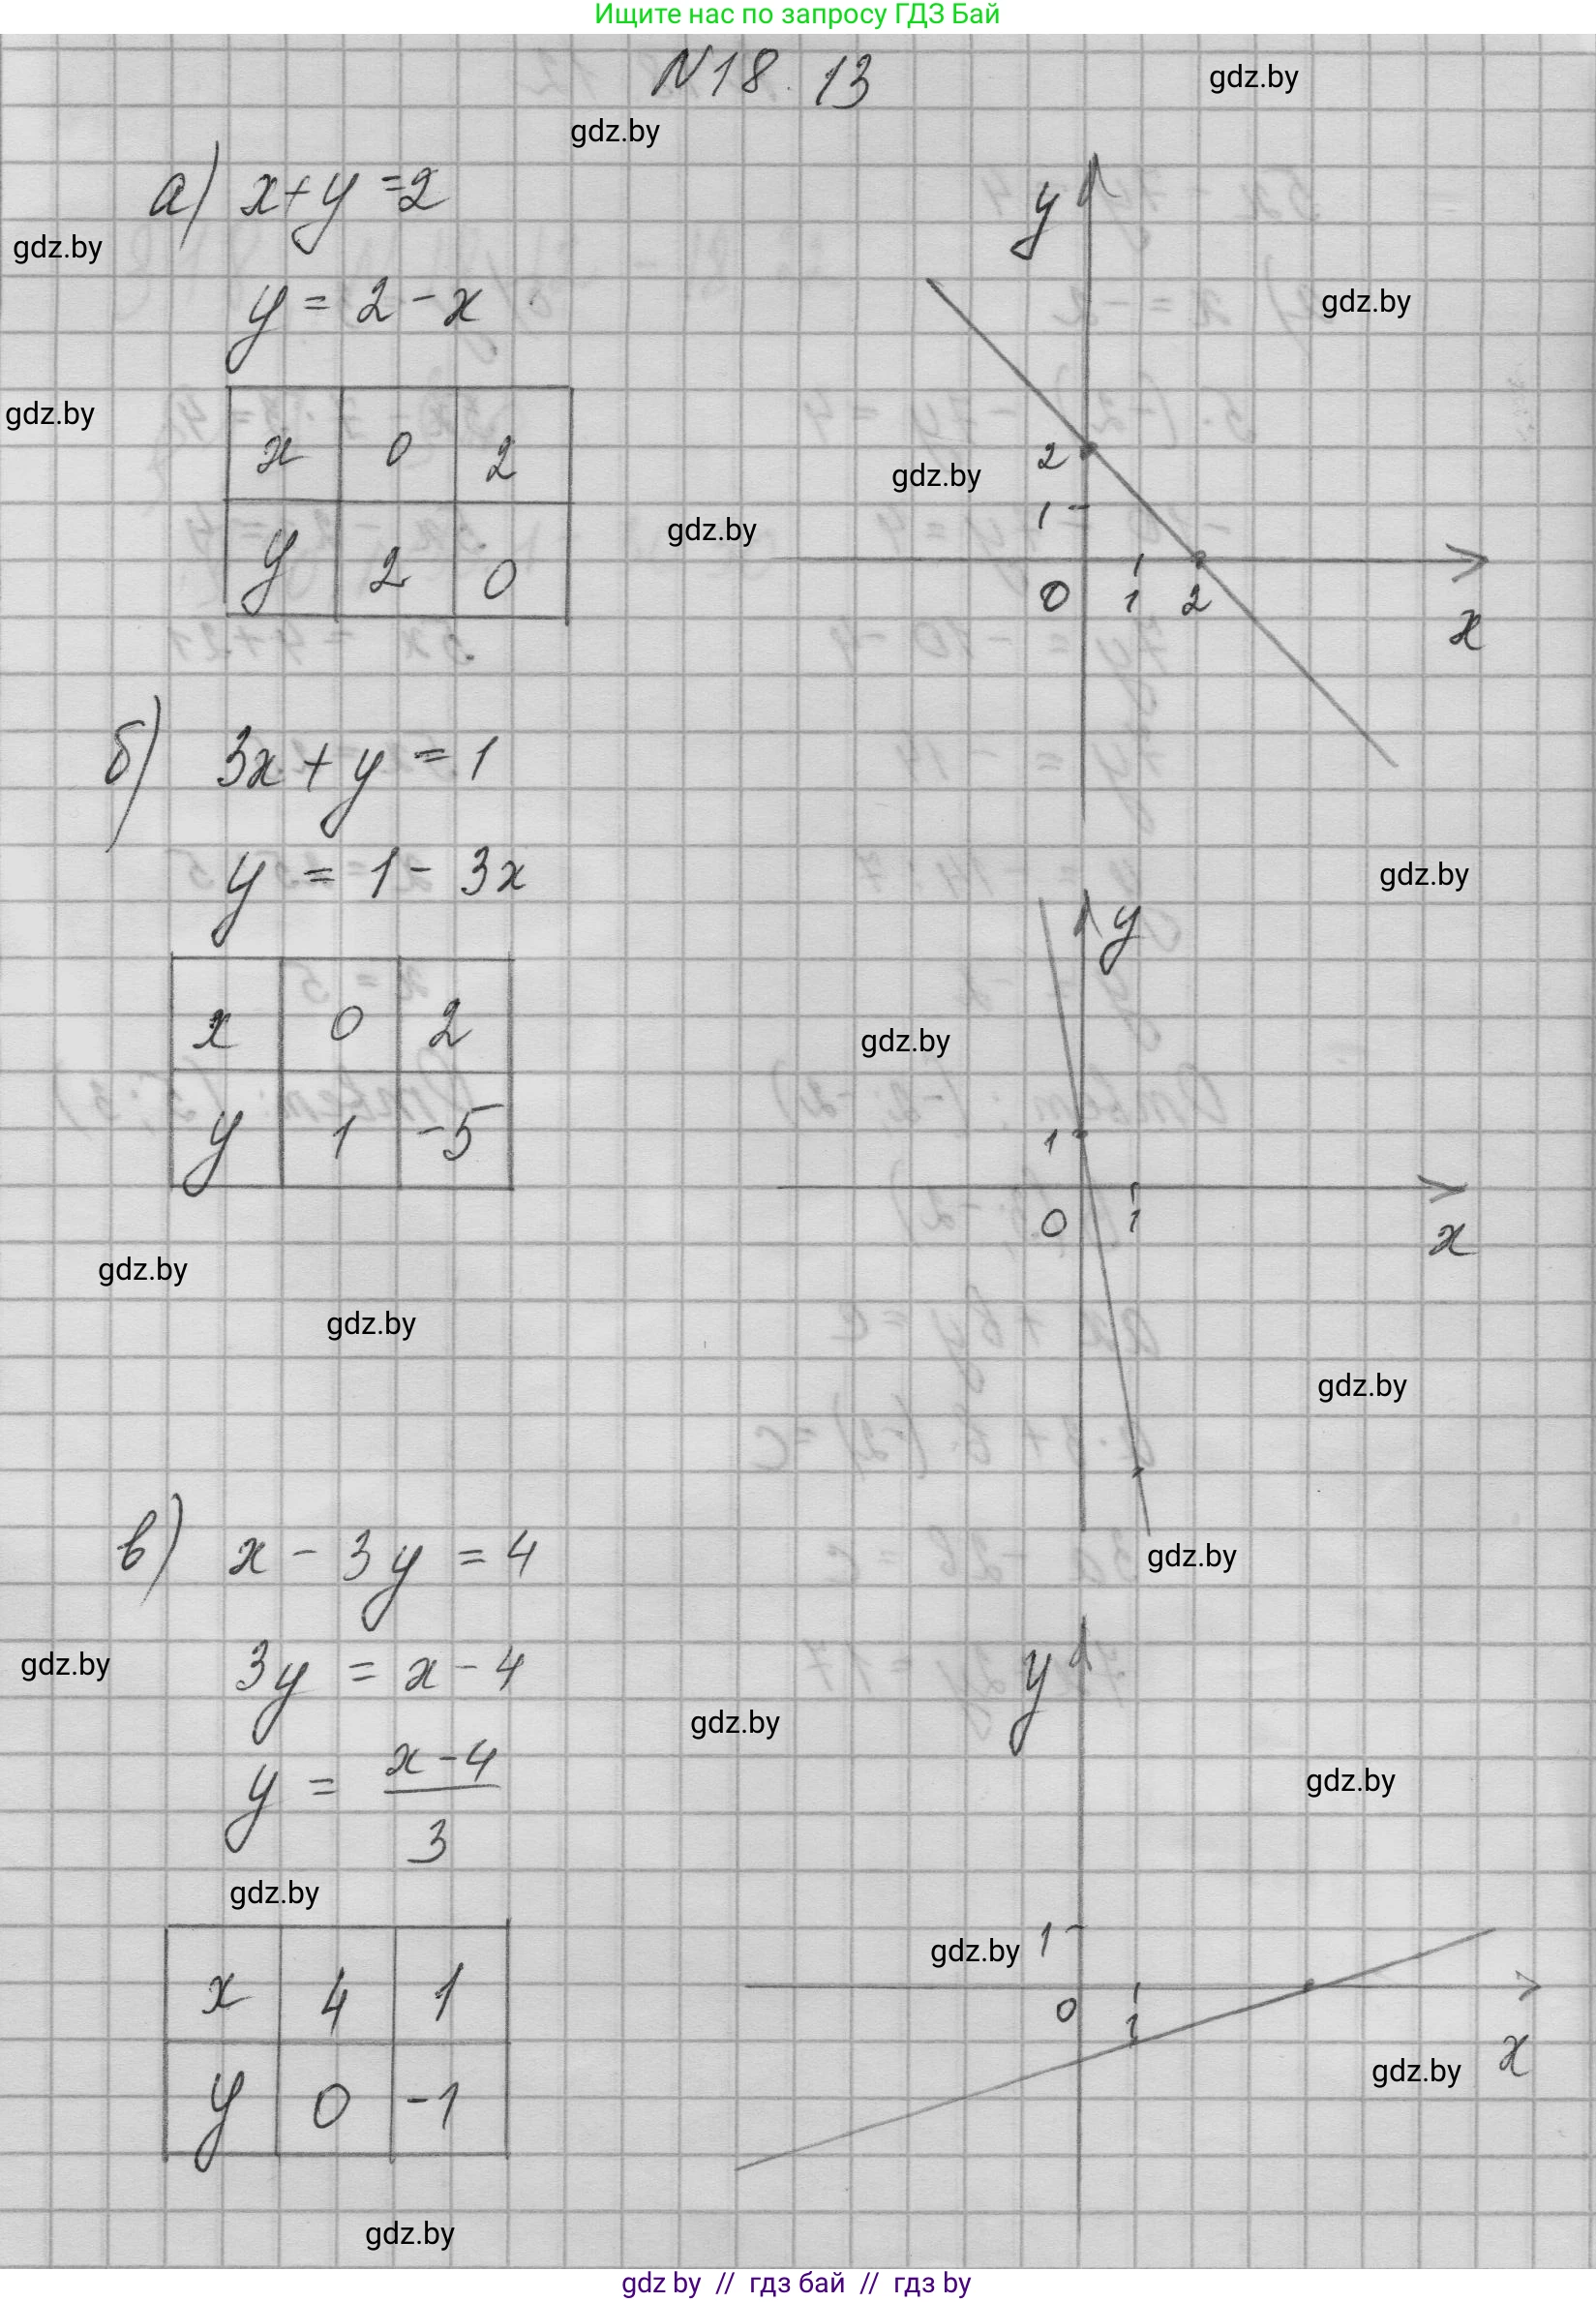 Ищите нас по запросу ГДЗ Бай
N18.13
gdz.by
gdz.by
а) x+y=2
gdz.by
y = 2 - x
gdz.by
gdz.by
x 0 2
y 2 0
gdz.by
gdz.by
y
2
1
0 1 2
x
б) 3x + y = 1
y = 1 - 3x
gdz.by
x 0 2
y 1 -5
gdz.by
y
1
0 1
x
gdz.by
gdz.by
gdz.by
в) x - 3y = 4
gdz.by
3y = x - 4
gdz.by
gdz.by
y = x-4
3
gdz.by
gdz.by
x 4 1
y 0 -1
y
1
gdz.by
0 1
x
gdz.by
gdz.by
gdz by // гдз бай // гдз by